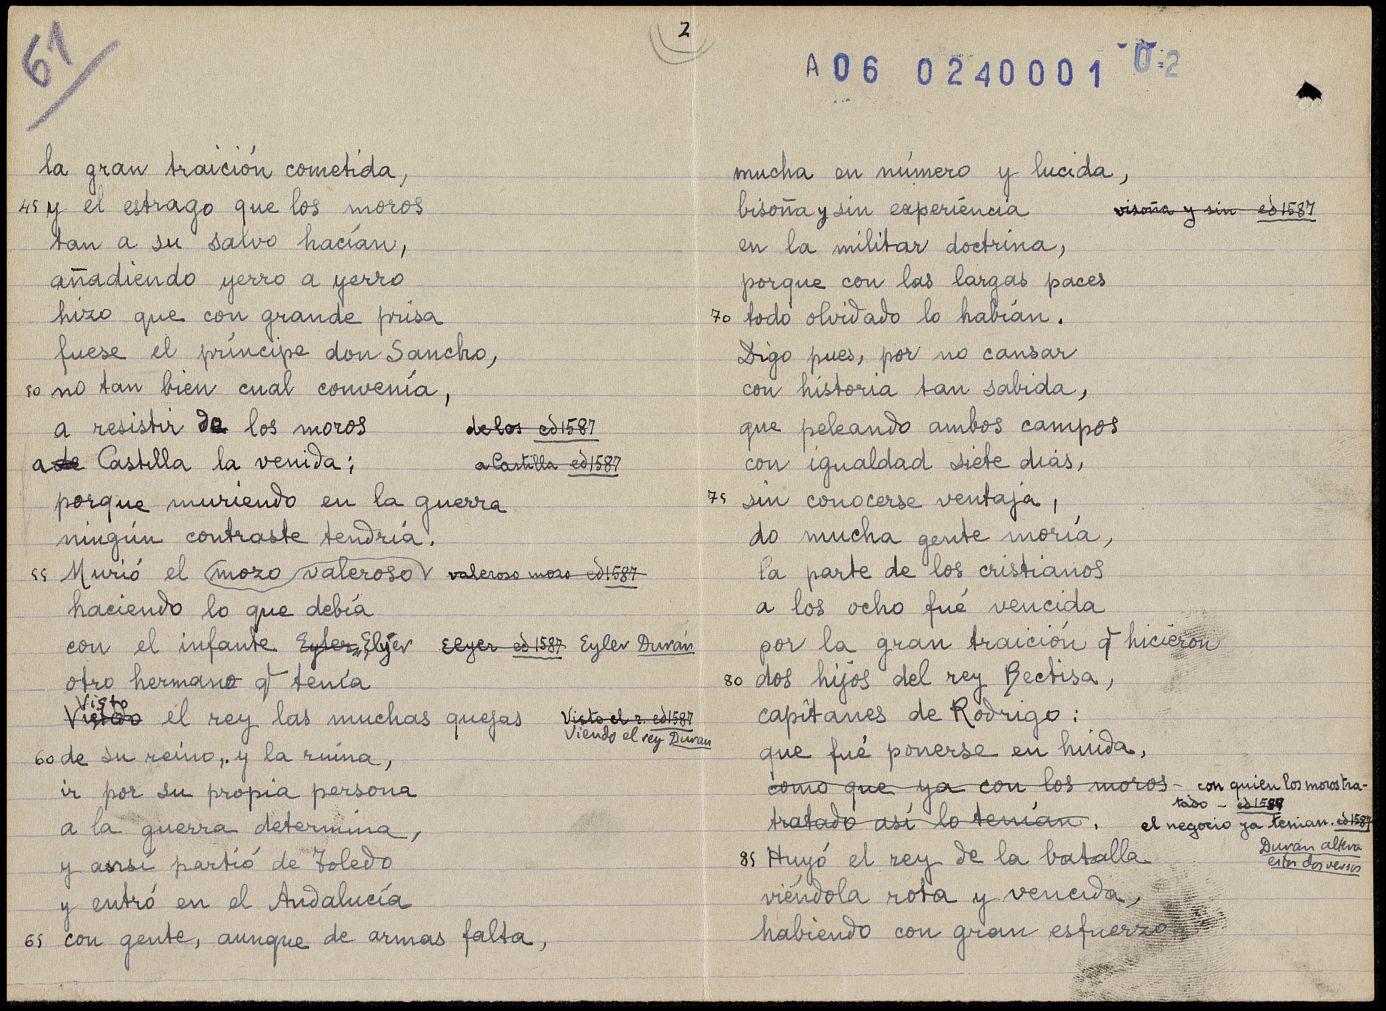 61
2
A06 0240001 0-2
la gran traición cometida,
45 y el estrago que los moros
tan a su salvo hacían,
añadiendo yerro a yerro
hizo que con grande prisa
fuese el príncipe don Sancho,
50 no tan bien cual convenía,
a resistir de los moros de los ed 1587
a de Castilla la venida; a Castilla ed 1587
porque muriendo en la guerra
ningún contraste tendría.
55 Murió el mozo valeroso valeroso mozo ed 1587
haciendo lo que debía
con el infante Eyler Elyer Elyer ed 1587 Eyler Durán
otro hermano q̄ tenía
Visto
el rey las muchas quejas Visto el r. ed 1587
Viendo el rey Duran
60 de su reino, y la ruina,
ir por su propia persona
a la guerra determina,
y ansí partió de Toledo
y entró en el Andalucía
65 con gente, aunque de armas falta,
mucha en número y lucida,
bisoña y sin experiencia visoña y sin ed 1587
en la militar doctrina,
porque con las largas paces
70 todo olvidado lo habían.
Digo pues, por no cansar
con historia tan sabida,
que peleando ambos campos
con igualdad siete días,
75 sin conocerse ventaja,
do mucha gente moría,
la parte de los cristianos
a los ocho fué vencida
por la gran traición q̄ hicieron
80 dos hijos del rey Bectisa,
capitanes de Rodrigo:
que fué ponerse en huida,
como que ya con los moros - con quien los moros tra-
tado - ed 1587
tratado así lo tenían. el negocio ya tenian. ed 1587
Durán altera
estos dos versos
85 Huyó el rey de la batalla
viéndola rota y vencida,
habiendo con gran esfuerzo